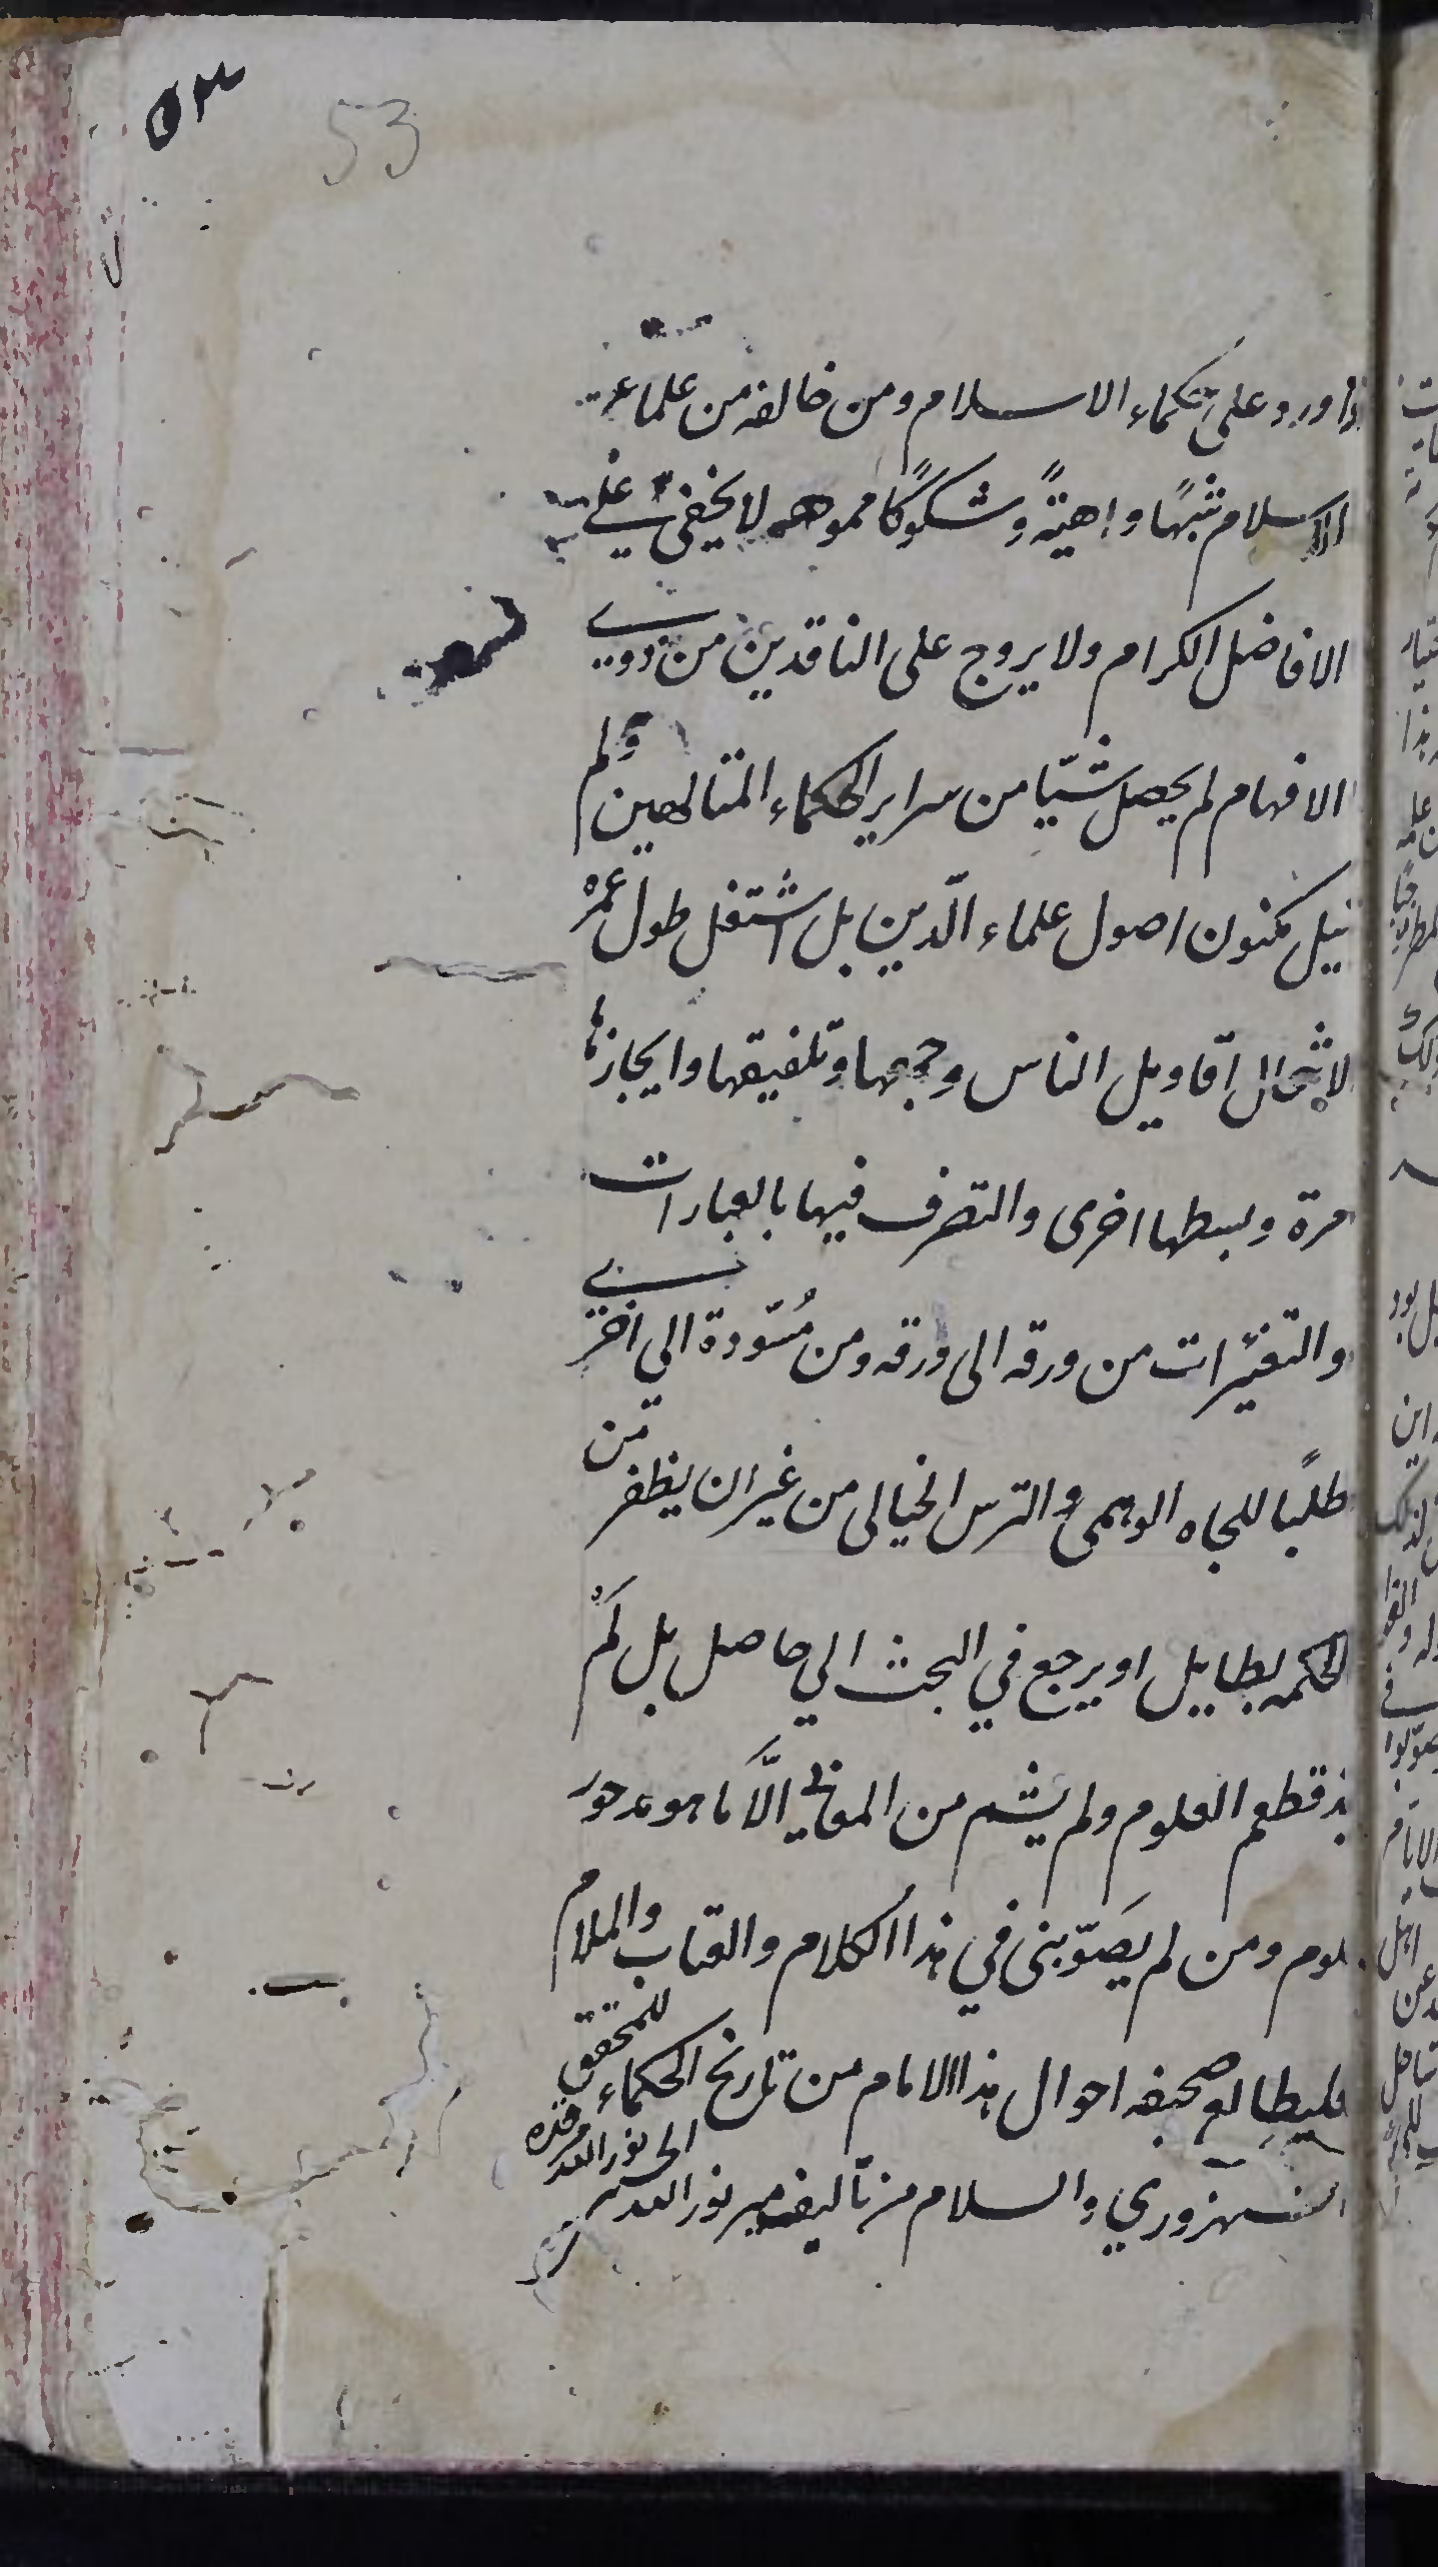 ٥٣
53
اورد على حكماء الاسلام ومن خالفه من علماء
الاسلام شبهًا واهيةً وشكوكًا مموهه لا يخفى على
الافاضل الكرام ولا يروج على الناقدين من ذوي
الافهام لم يحصل شيًا من سراير الحكماء المتالهين ولم
ينل مكنون اصول علماء الدّين بل اشتغل طول عمره
اقاويل الناس وجمعها وتلفيقها وايجازها
مرة وبسطها اخرى والتصرف فيها بالعبارات
والتغيّرات من ورقه الى ورقه ومن مُسّودة الي اخرى
طلبًا للجاه الوهمى والترس الخيالى من غير ان يظفر من
الحكمه بطايل او يرجع في البحث الي حاصل بل لَمْ
يذق طعم العلوم ولم يشم من المعانى الّا ما هو مدحور
ملوم ومن لم يصَوّبنى في هذا الكلام والعتاب والملام
فليطالع صحيفه احوال هذا الامام من تاريخ الحكماء للمحقق
الشهزوري والسلام من تاليف مير نور الله
الحسينى نور الله مرقده